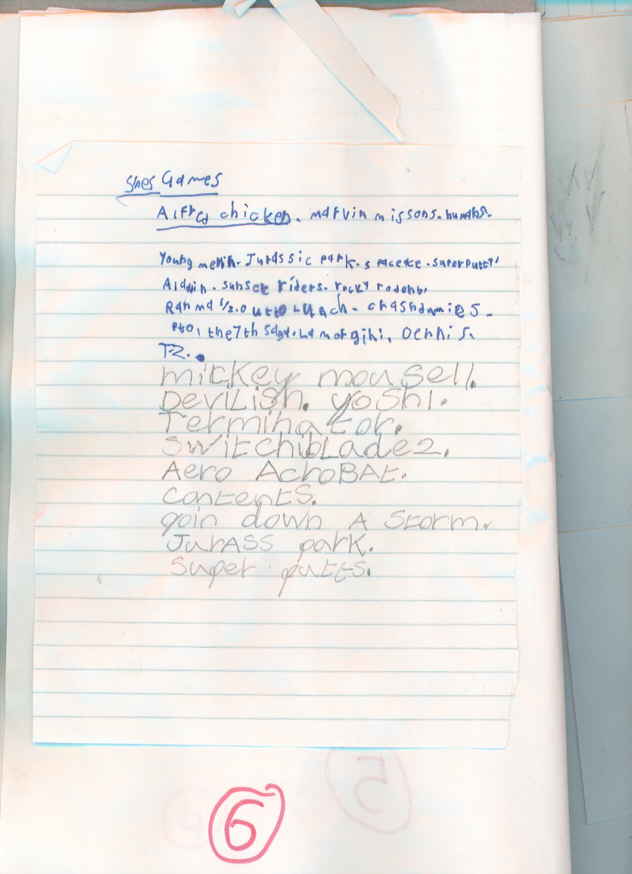 Snes Games
Alfred chicken. marvin missons. humans.
Young merlin. Jurassic park. s pacerace. superputty'
Aladin. sunset riders. rocky rodent.
Ranma 1/2. outto lunch. crashdumies.
the7th saga.
T2..
mickey mousell.
Devilish. yoshi.
Terminator.
SwitchbLade2.
Aero AcroBAt.
contents.
goin down A Storm.
JurASS park.
super putts.
6
5